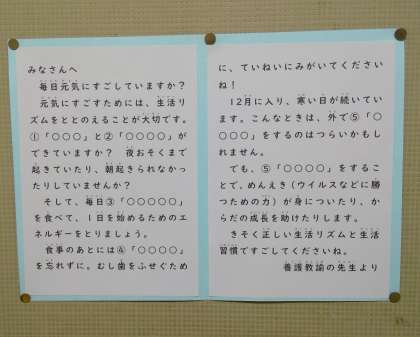 みなさんへ
毎日元気にすごしていますか?
元気にすごすためには、生活リ
ズムをととのえることが大切です。
①「○○○」と②「○○○○」が
できていますか? 夜おそくまで
起きていたり、朝起きられなかっ
たりしていませんか?
そして、毎日③「○○○○○」
を食べて、1日を始めるためのエ
ネルギーをとりましょう。
食事のあとには④「○○○○」
を忘れずに。むし歯をふせぐため
に、ていねいにみがいてください
ね!
12月に入り、寒い日が続いてい
ます。こんなときは、外で⑤「○
○○○」をするのはつらいかもし
れません。
でも、⑤「○○○○」をするこ
とで、めんえき(ウイルスなどに勝
つための力)が身についたり、か
らだの成長を助けたりします。
きそく正しい生活リズムと生活
習慣ですごしてくださいね。
養護教諭の先生より